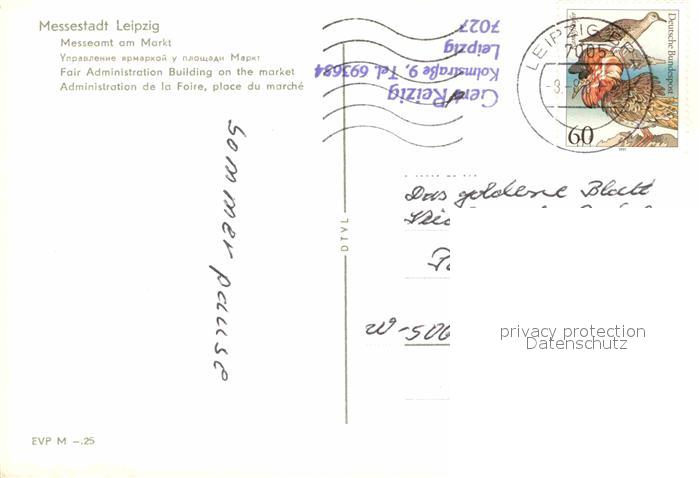 Messestadt Leipzig
Messeamt am Markt
Управление ярмаркой у площади Маркт
Fair Administration Building on the market
Administration de la Foire, place du marché
Sommerpause
EVP M –.25
DTVL
Gert Reizig
Kolmstraße 9, Tel. 693684
Leipzig
7027
LEIPZIG BPA
7005
Deutsche Bundespost
60
Das goldene Blatt
W-506
privacy protection
Datenschutz